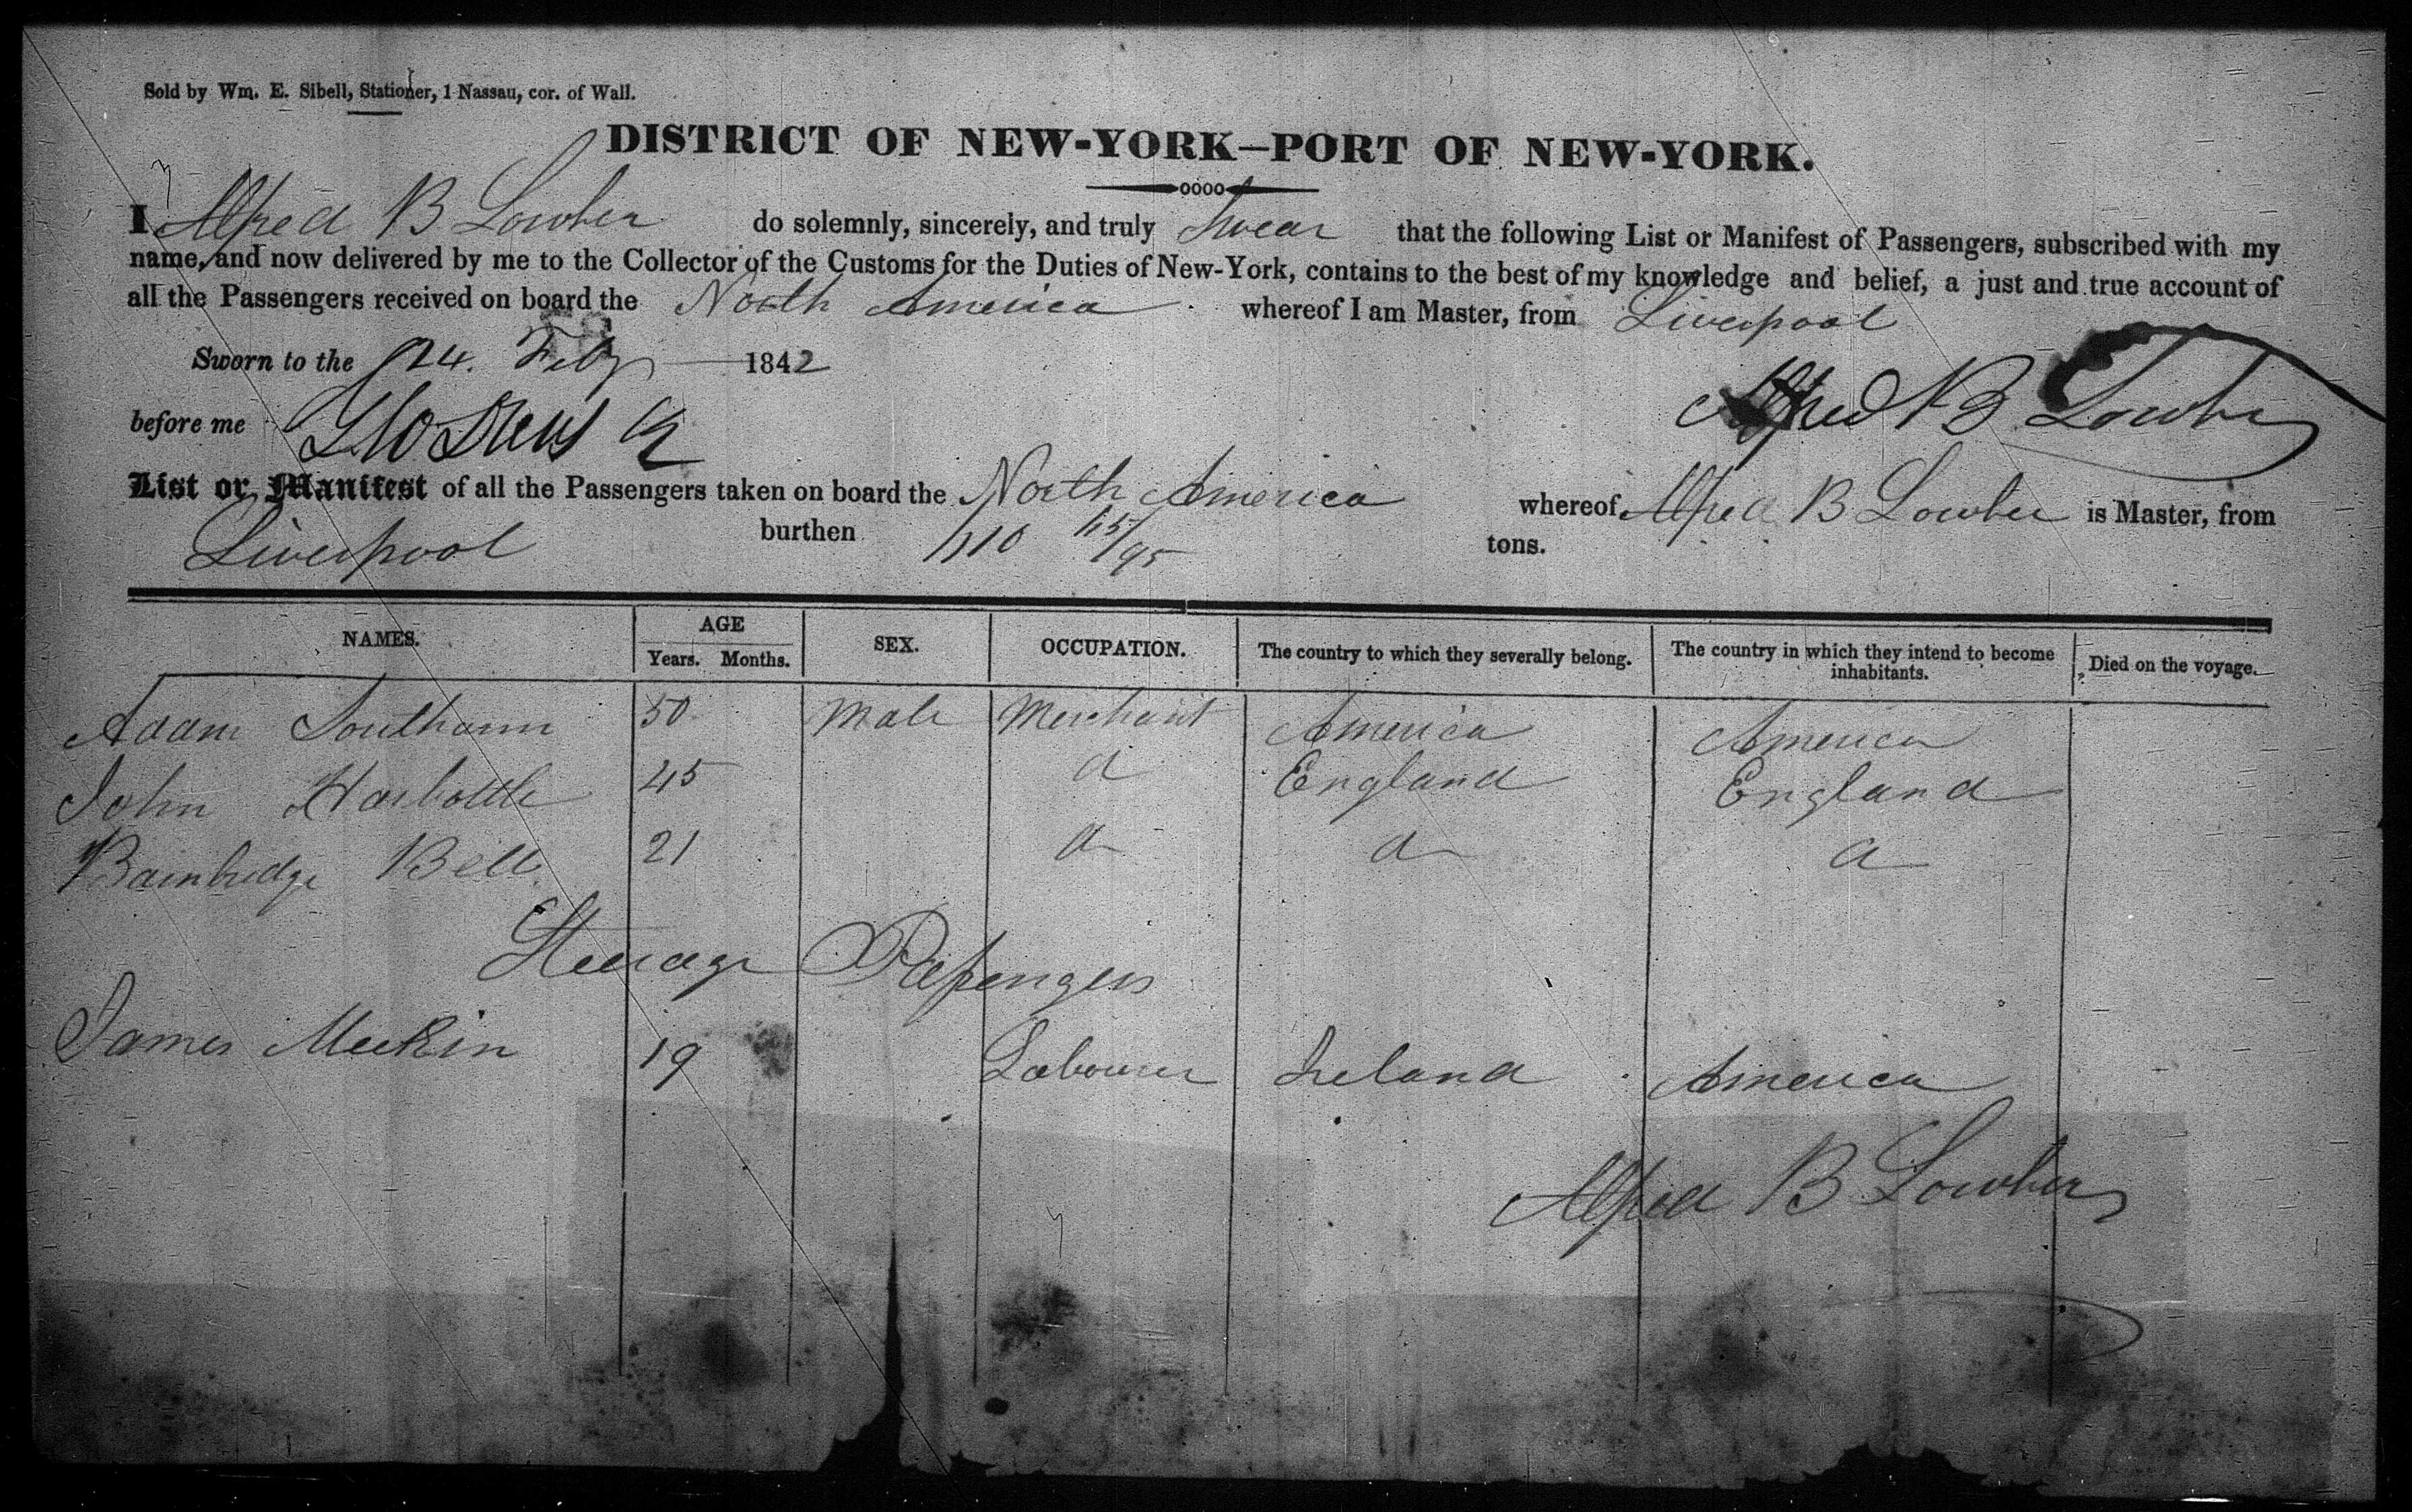 Sold by Wm. E. Sibell, Stationer, 1 Nassau, cor. of Wall.
DISTRICT OF NEW-YORK—PORT OF NEW-YORK.
I Alfred B Lowber do solemnly, sincerely, and truly Swear that the following List or Manifest of Passengers, subscribed with my
name, and now delivered by me to the Collector of the Customs for the Duties of New-York, contains to the best of my knowledge and belief, a just and true account of
all the Passengers received on board the North America whereof I am Master, from Liverpool
Sworn to the 24. Feby 1842
Alfred B Lowber
before me
List or Manifest of all the Passengers taken on board the North America whereof Alfred B Lowber is Master, from
Liverpool burthen 45/95 tons.
NAMES. AGE Years. Months. SEX. OCCUPATION. The country to which they severally belong. The country in which they intend to become inhabitants. Died on the voyage.
Adam Southarn 50 Male Merchant America America
John Harbottle 45 d England England
Bainbridge Bell 21 d d d
Steerage Passengers
James Meekin 19 Labourer Ireland America
Alfred B Lowber